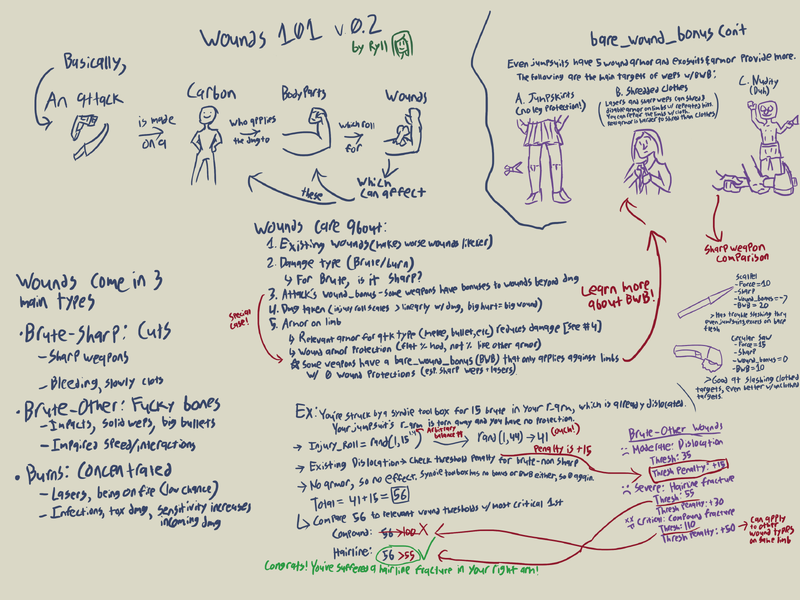 Wounds 101 v 0.2
by Ryll
Basically,
An attack
is made
on a
Carbon
who applies
the dmg to
BodyParts
which roll
for
Wounds
which
can affect
these
bare_wound_bonus Con't
Even jumpsuits have 5 wound armor and exosuits & armor provide more.
The following are the main targets of weps w/BWB:
A. Jumpskirts
(no leg protection!)
B. Shredded clothes
C. Nudity
(Duh)
Wounds care about:
1. Existing wounds (makes worse wounds likelier)
2. Damage type (Brute/burn)
↳ For Brute, is it sharp?
3. Attack's wound_bonus - some weapons have bonuses to wounds beyond dmg
4. Dmg taken (inj roll scales > linearly w/ dmg, big hurt = big wound)
5. Armor on limb
↳ Relevant armor for atk type (melee, bullet, etc) reduces damage [see #4]
↳ Wound armor Protection (flat % mod, not % like other armor)
☆ Some weapons have a bare_wound_bonus (BWB) that only applies against limbs
w/ 0 wound Protections (esp. sharp weps + lasers)
Special
case!
Learn more
about BWB!
Sharp weapon
comparison
Scalpel
- Force = 10
- Sharp
- BWB = 20
> Has trouble slashing thru
even jumpsuits, excels on bare
flesh
Circular Saw
- Force = 15
- Sharp
- wound_bonus = 0
BWB = 10
> Good at slashing clothed
targets, even better w/ unclothed
targets.
Wounds come in 3
main types
• Brute-Sharp: Cuts
- Sharp weapons
- Bleeding, slowly clots
• Brute-Other: Fucky bones
- Impacts, solid weps, big bullets
- Impaired speed/interactions
• Burns: Concentrated
- Lasers, being on fire (low chance)
- Infections, tox dmg, sensitivity increases
incoming dmg
Ex: You're struck by a Syndie tool box for 15 brute in your r-arm, which is already dislocated.
Your jumpsuit's r-arm is torn away and you have no protection.
→ Injury_Roll = rand(1, 15^1.4) → rand(1, 44) → 41
Arbitrary
balance #
(ouch!)
Penalty is +15
→ Existing Dislocation → Check threshold penalty for brute-non sharp
→ No armor, so no effect. Syndie toolbox has no bonus or BWB either, so 0 again.
Total = 41 + 15 = 56
↳ Compare 56 to relevant wound thresholds w/ most critical 1st
Compound: 56 > 100 X
Hairline: 56 > 55
Congrats! You've suffered a hairline fracture in your right arm!
Brute-Other Wounds
Moderate: Dislocation
Thresh: 35
Thresh Penalty: +15
Severe: Hairline fracture
Thresh: 55
Thresh Penalty: +30
Critical: Compound fracture
Thresh: 110
Thresh Penalty: +50
→ Can apply
to other
wound types
on same limb